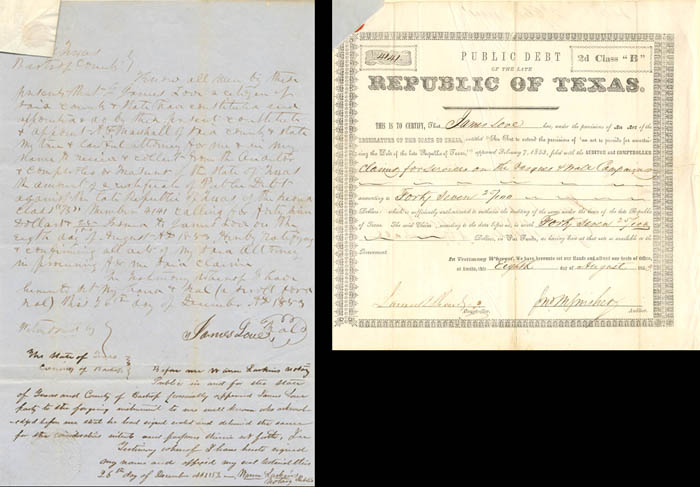 Bastrop County
Know all men by these
presents that I James Love a citizen of
said county & State have constituted and
appointed & do by these present constitute
& appoint
my true & lawful attorney for me & in my
name to receive & collect from the Auditor
& Comptroller or Treasurer of the State of Texas
the amount of a certificate of Public Debt
against the late Republic of Texas of the second
Class "B" Number 4141 calling for forty seven
Dollars & 25 issued to James Love on the
eighth day of August AD 1853 hereby ratifying
& confirming all acts of my said Attorney
in procuring for me said claim.
In testimony whereof I have
hereunto set my hand & seal (a scroll for a
seal) this 26th day of December AD 1853
James Love Seal
The State of Texas
County of Bastrop
Before me Notary
Public in and for the state
of Texas and County of Bastrop personally appeared James Love
party to the forgoing instrument to me well known who acknowl
edged before me that he had signed sealed and delivered the same
for the consideration intents and purposes therein set forth, In
Testimony whereof I have hereto signed
my name and affixed my seal this
26th day of December AD 1853
Notary Public
4141
PUBLIC DEBT
OF THE LATE
2d Class "B"
REPUBLIC OF TEXAS.
THIS IS TO CERTIFY, That James Love has, under the provisions of An Act of the
LEGISLATURE OF THE STATE OF TEXAS, entitled "An Act to extend the provisions of 'an act to provide for ascer-
taining the Debt of the late Republic of Texas,'" approved February 7, 1853, filed with the AUDITOR and COMPTROLLER
Claims for services on the Vasques & Woll Campaigns
amounting to Forty Seven 25/100
Dollars: which is sufficiently authenticated to authorize the auditing of the same under the laws of the late Republic
of Texas. Forty Seven 25/100
Dollars, in Par Funds, as having been at that rate so available to the
Government.
In Testimony Whereof, We have hereunto set our Hands and affixed our Seals of Office,
at Austin, this Eighth day of August 185
Comptroller.
Auditor.